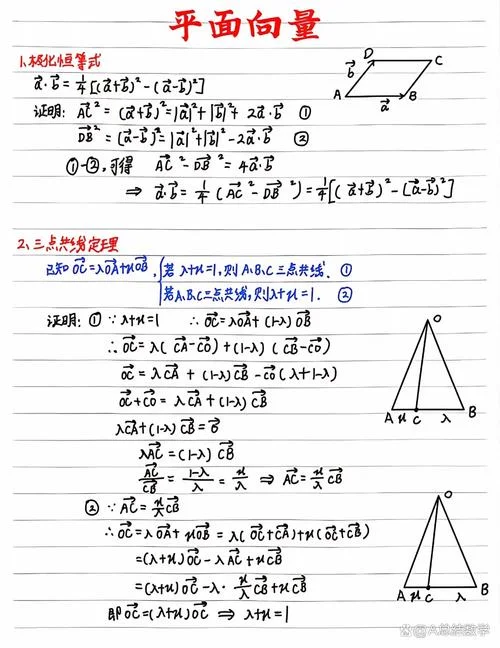 平面向量
1.极化恒等式
$\vec{a}\cdot\vec{b}=\frac{1}{4}[(\vec{a}+\vec{b})^2-(\vec{a}-\vec{b})^2]$
D C
$\vec{b}$
A $\vec{a}$ B
证明: $\vec{AC}^2=(\vec{a}+\vec{b})^2=|\vec{a}|^2+|\vec{b}|^2+2\vec{a}\cdot\vec{b}$ ①
$\vec{DB}^2=(\vec{a}-\vec{b})^2=|\vec{a}|^2+|\vec{b}|^2-2\vec{a}\cdot\vec{b}$ ②
①-②,可得 $\vec{AC}^2-\vec{DB}^2=4\vec{a}\cdot\vec{b}$
$\Rightarrow \vec{a}\cdot\vec{b}=\frac{1}{4}(\vec{AC}^2-\vec{DB}^2)=\frac{1}{4}[(\vec{a}+\vec{b})^2-(\vec{a}-\vec{b})^2]$
2.三点共线定理
已知 $\vec{OC}=\lambda\vec{OA}+\mu\vec{OB}$, {若 λ+μ=1,则A、B、C三点共线. ①
若A、B、C三点共线,则λ+μ=1. ②
证明: ① ∵ λ+μ=1 ∴ $\vec{OC}=\lambda\vec{OA}+(1-\lambda)\vec{OB}$
∴ $\vec{OC}=\lambda(\vec{CA}-\vec{CO})+(1-\lambda)(\vec{CB}-\vec{CO})$
$\vec{OC}=\lambda\vec{CA}+(1-\lambda)\vec{CB}-\vec{CO}(\lambda+1-\lambda)$
$\vec{OC}+\vec{CO}=\lambda\vec{CA}+(1-\lambda)\vec{CB}$
$\lambda\vec{CA}+(1-\lambda)\vec{CB}=\vec{0}$
$\lambda\vec{AC}=(1-\lambda)\vec{CB}$
$\frac{\vec{AC}}{\vec{CB}}=\frac{1-\lambda}{\lambda}=\frac{\mu}{\lambda} \Rightarrow \vec{AC}=\frac{\mu}{\lambda}\vec{CB}$
O
A μ C λ B
② ∵ $\vec{AC}=\frac{\mu}{\lambda}\vec{CB}$
∴ $\vec{OC}=\lambda\vec{OA}+\mu\vec{OB}=\lambda(\vec{OC}+\vec{CA})+\mu(\vec{OC}+\vec{CB})$
$=(\lambda+\mu)\vec{OC}-\lambda\vec{AC}+\mu\vec{CB}$
$=(\lambda+\mu)\vec{OC}-\lambda\cdot\frac{\mu}{\lambda}\vec{CB}+\mu\vec{CB}$
即 $\vec{OC}=(\lambda+\mu)\vec{OC} \Rightarrow \lambda+\mu=1$
O
A μ C λ B
@A总结数学